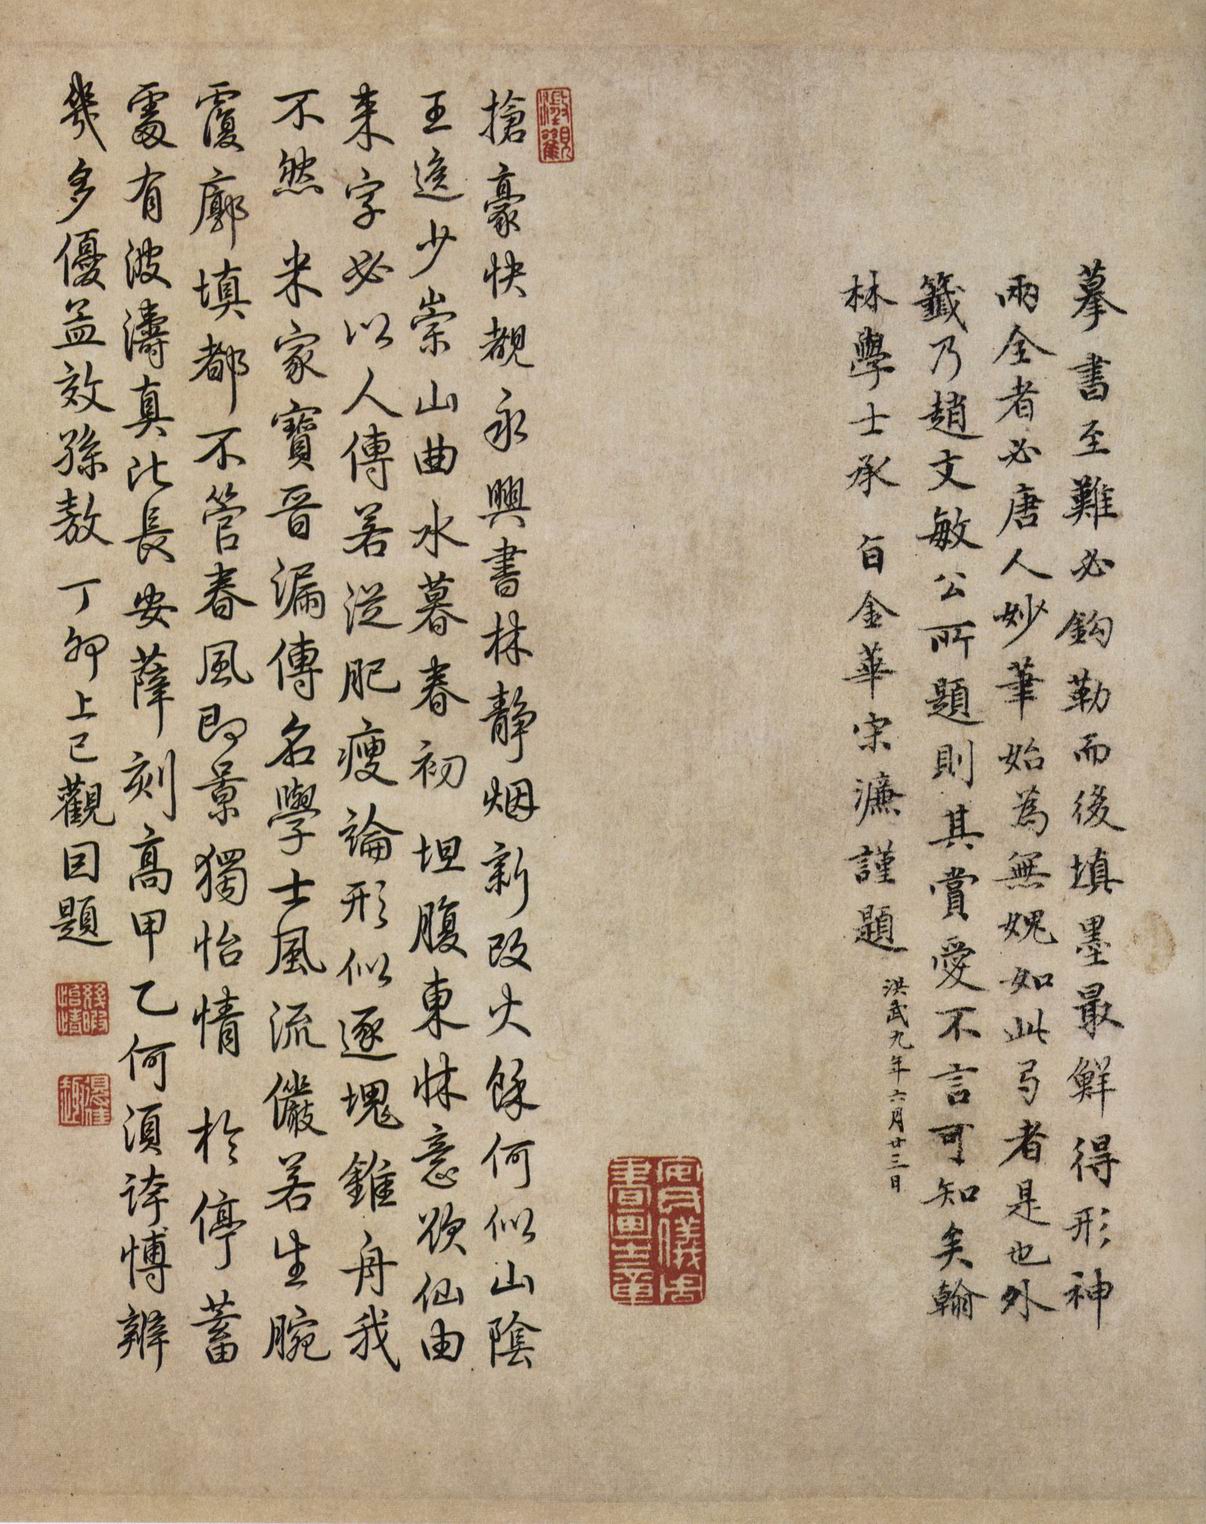 摹書至難必鈎勒而後填墨最鮮得形神
兩全者必唐人妙筆始為無媿如此弓者是也外
籤乃趙文敏公所題則其賞愛不言可知矣翰
林學士承旨金華宋濂謹題
洪武九年六月廿三日
安儀周
書畫之章
搶豪快覩永興書林静烟新改火餘何似山陰
王逸少崇山曲水暮春初 坦腹東牀意欲仙由
来字必以人傳若從肥瘦論形似逐塊錐舟我
不然 米家寶晋漏傳名學士風流儼若生腕
覆廓填都不管春風即景獨怡情 於停蓄
處有波濤真比長安薛刻高甲乙何須誇博辨
幾多優孟效孫敖 丁卯上巳觀因題
幾暇
怡情